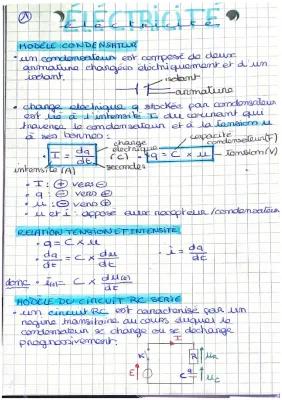 ÉLECTRICITÉ
MODÈLE CONDENSATEUR
• un condensateur est composé de deux
armature chargées électriquement et d'un
isolant.
isolant
armature
• charge électrique q stockée par condensateur
est lié à l'intensité I du courant qui
traverse le condensateur et à la tension u
à ses bornes :
charge électrique (C)
capacité condensateur (F)
• I = dq/dt
• q = C × u
Tension (V)
intensité (A)
secondes
• I : ⊕ vers ⊖
• q : ⊖ vers ⊕
• u : ⊖ vers ⊕
• u et i : opposé aux récepteur/condensateur
RELATION TENSION ET INTENSITÉ
• q = C × u
• i = dq/dt
• dq/dt = C × du/dt
donc • i(t) = C × du(t)/dt
MODÈLE DU CIRCUIT RC SÉRIE
• un circuit RC est caractérisé par un
régime transitoire au cours duquel le
condensateur se charge ou se décharge
progressivement.
I
K
R
uR
E
C
q
uC